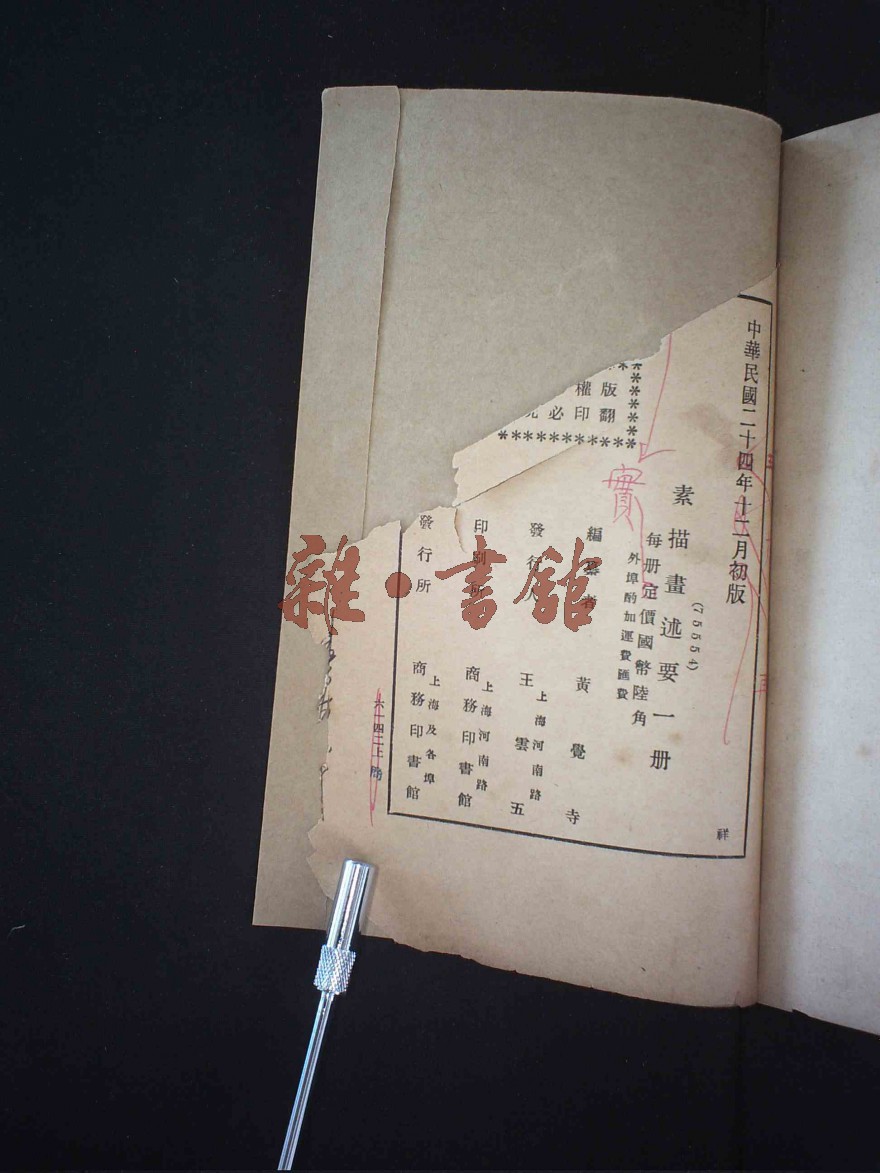 中華民國二十四年十二月初版
(75554)
素描畫述要一册
每册定價國幣陸角
外埠酌加運費匯費
版翻
權印
必
究
實
編纂者 黃覺寺
發行人 王雲五
上海河南路
印刷所 商務印書館
上海河南路
發行所 商務印書館
上海及各埠
六一四二上
祥
雜·書館